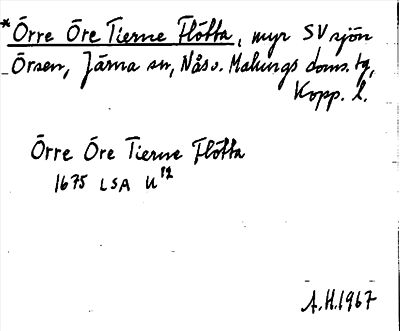 *Örre Öre Tierne Flötta, myr SV sjön
Örsen, Järna sn, Nås o. Malungs doms. tg,
Kopp. l.
Örre Öre Tierne Flötta
1675 LSA U12
A.H. 1967